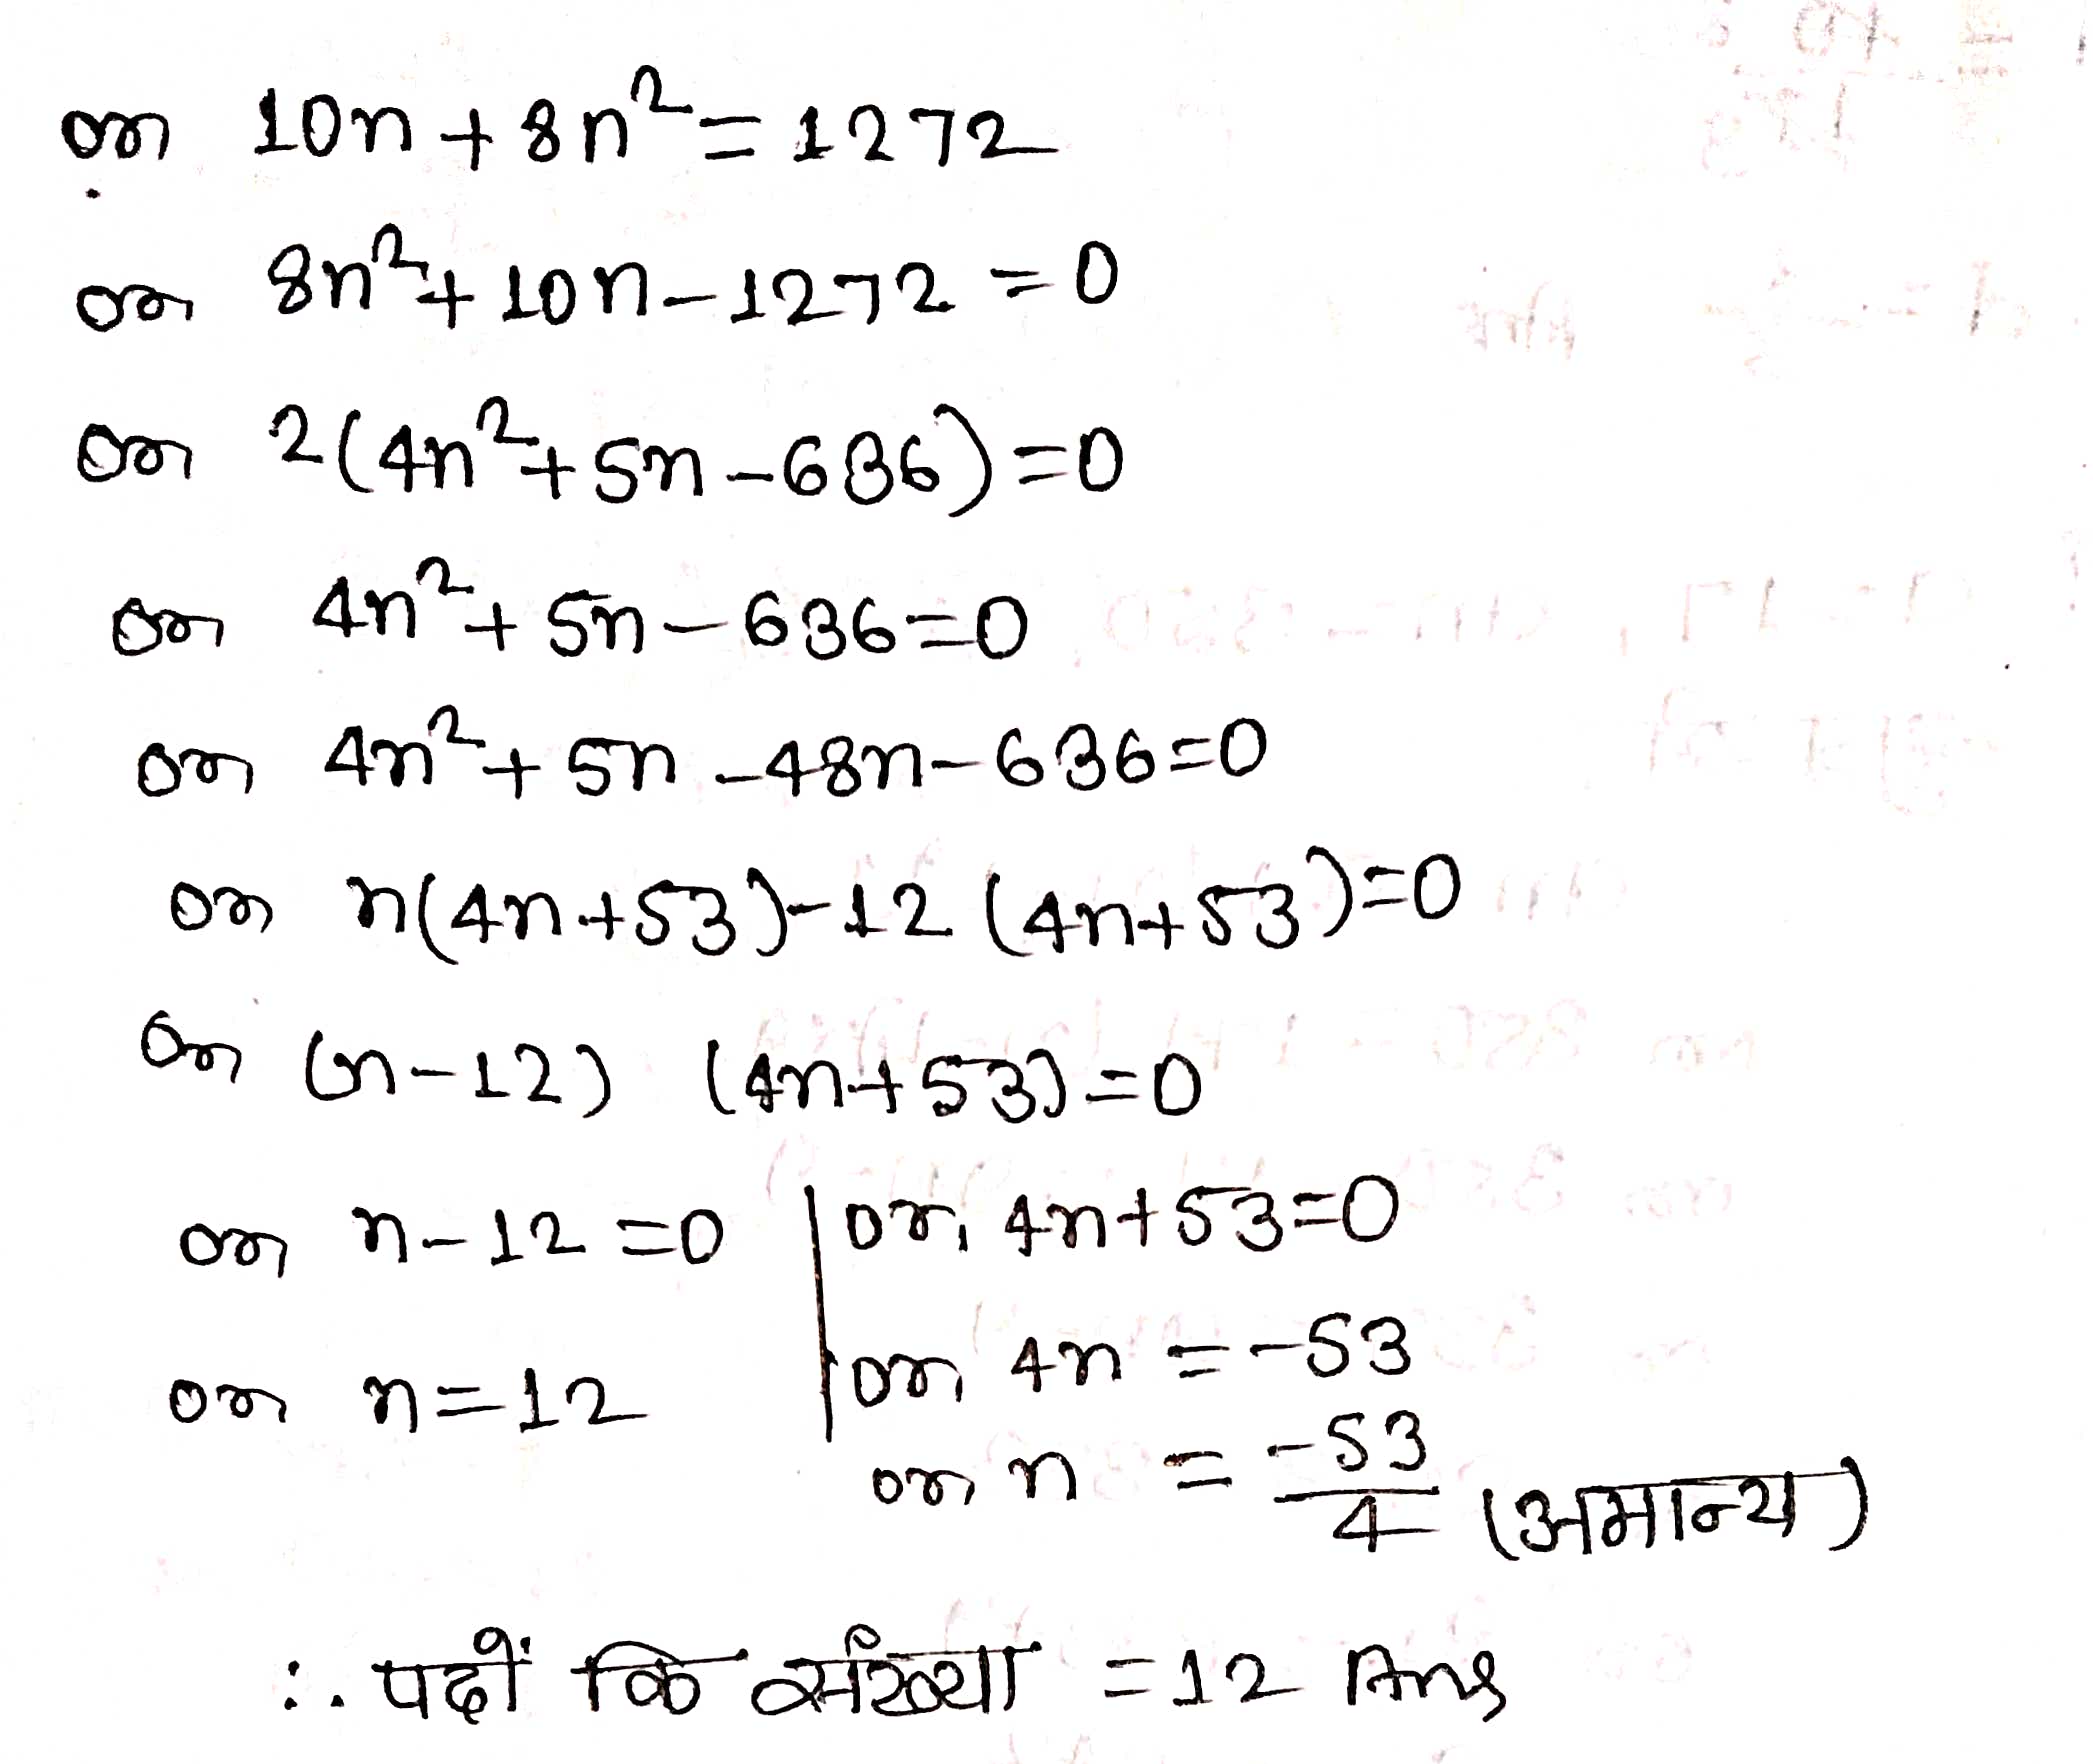 or 10n + 8n² = 1272
or 8n² + 10n - 1272 = 0
or 2(4n² + 5n - 636) = 0
or 4n² + 5n - 636 = 0
or 4n² + 5n - 48n - 636 = 0
or n(4n + 53) - 12 (4n + 53) = 0
or (n - 12) (4n + 53) = 0
or n - 12 = 0 | or, 4n + 53 = 0
or n = 12 | or 4n = -53
or n = -53/4 (अमान्य)
∴ पदों कि संख्या = 12 Ans